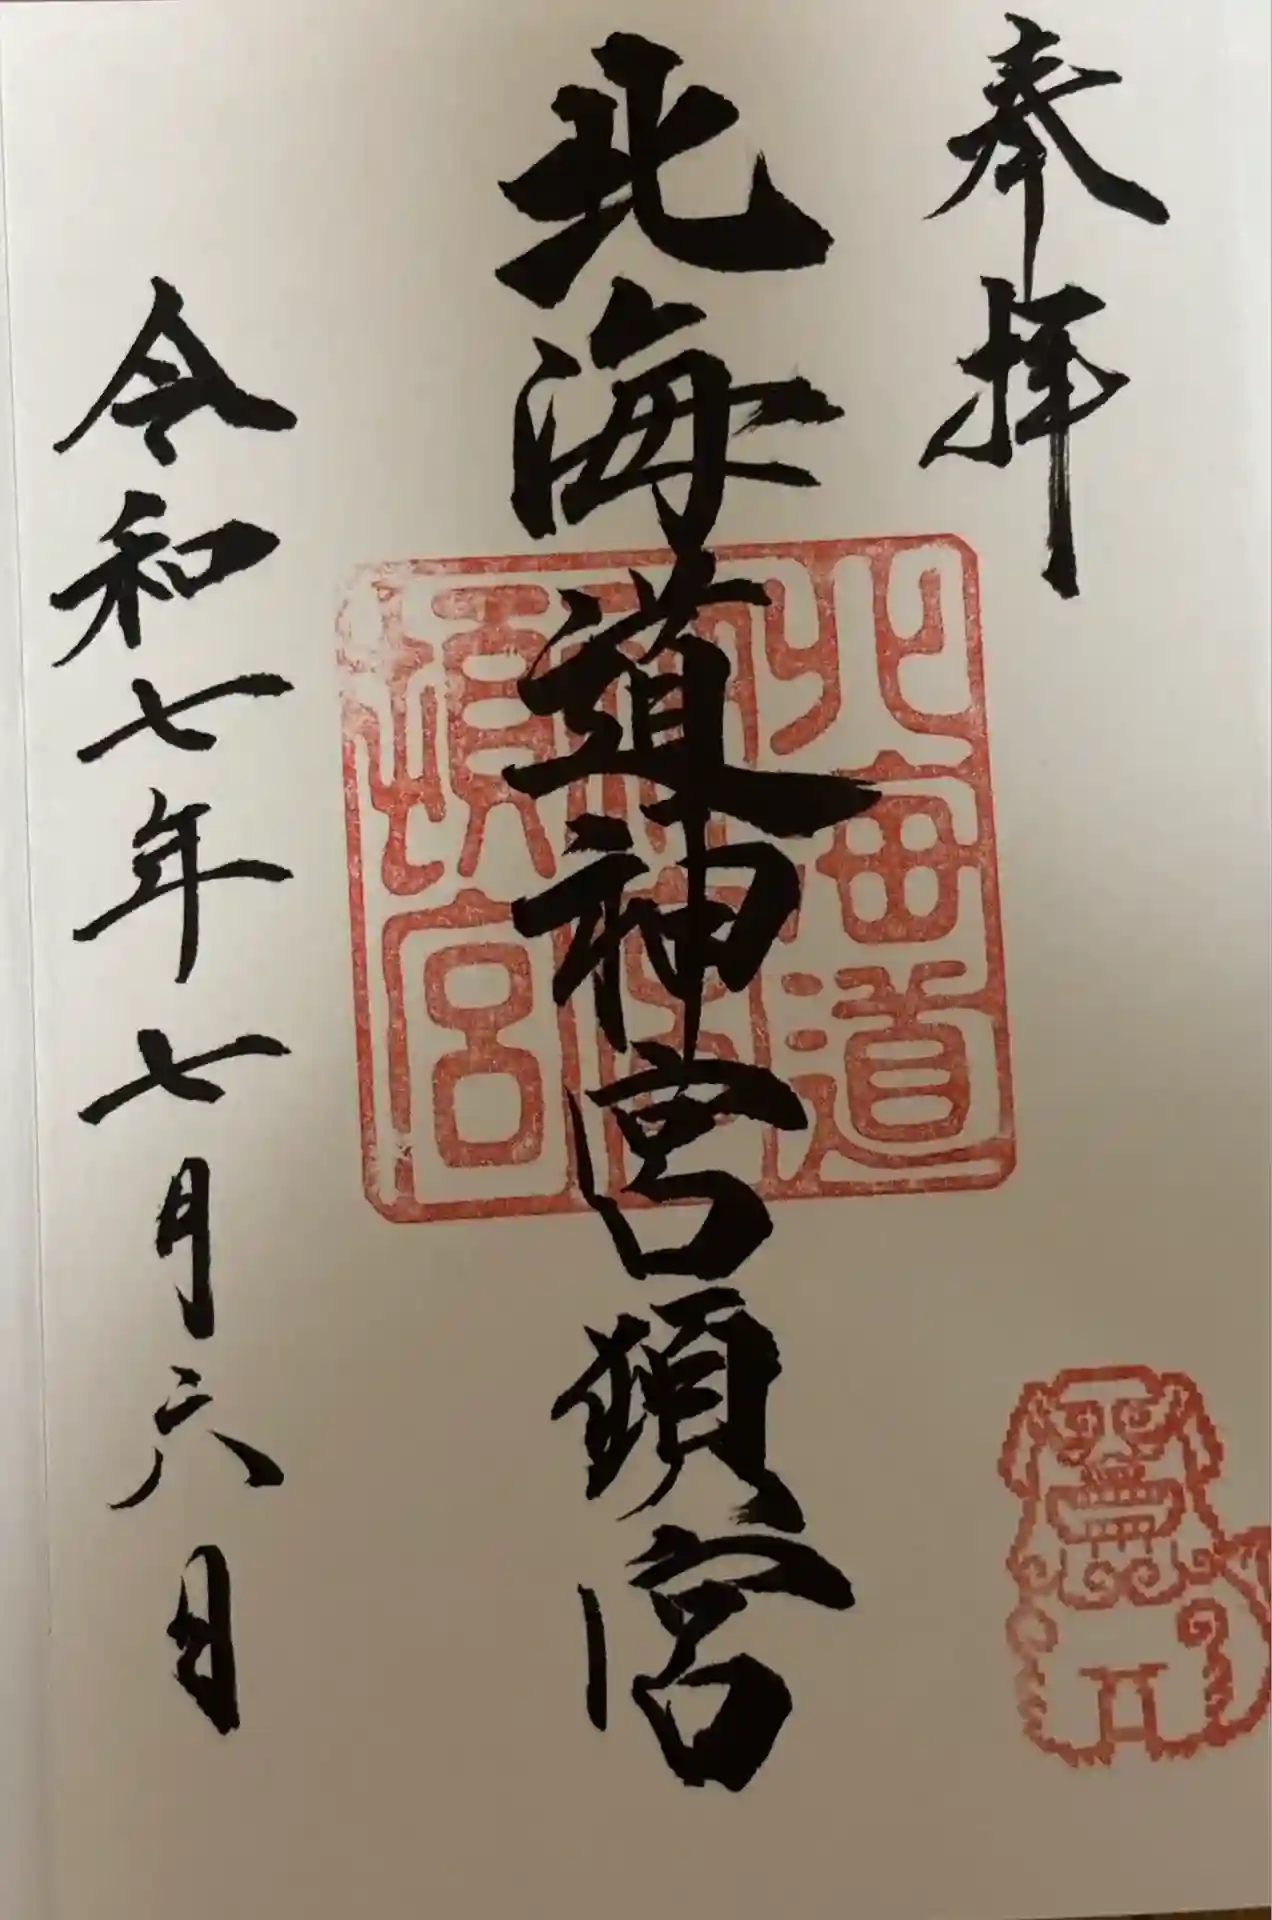 奉拝
北海道神宮頓宮
北海道
神宮
頓宮
令和七年七月六日